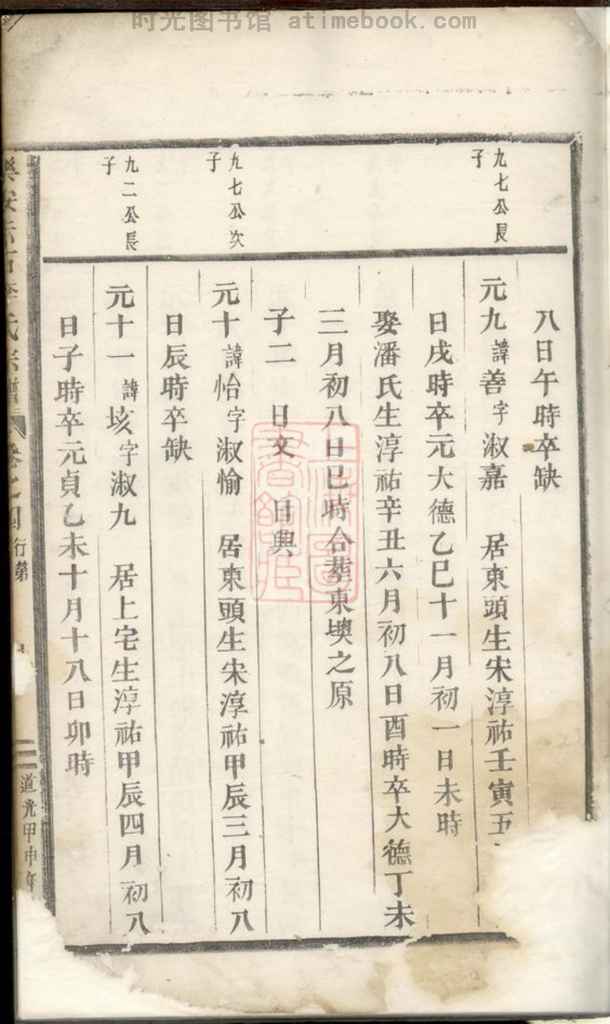 时光图书馆 atimebook.com
九七公長
子
八日午時卒缺
元九諱善字淑嘉 居東頭生宋淳祐壬寅五
日戌時卒元大德乙巳十一月初一日未時
娶潘氏生淳祐辛丑六月初八日酉時卒大德丁未
三月初八日巳時合葬東墺之原
子二 日文 日興
九七公次
子
元十諱怡字淑愉 居東頭生宋淳祐甲辰三月初八
日辰時卒缺
九二公長
子
元十一諱垓字淑九 居上宅生淳祐甲辰四月初八
日子時卒元貞乙未十月十八日卯時
氏宗譜 卷之四 行第 二 道光甲申年